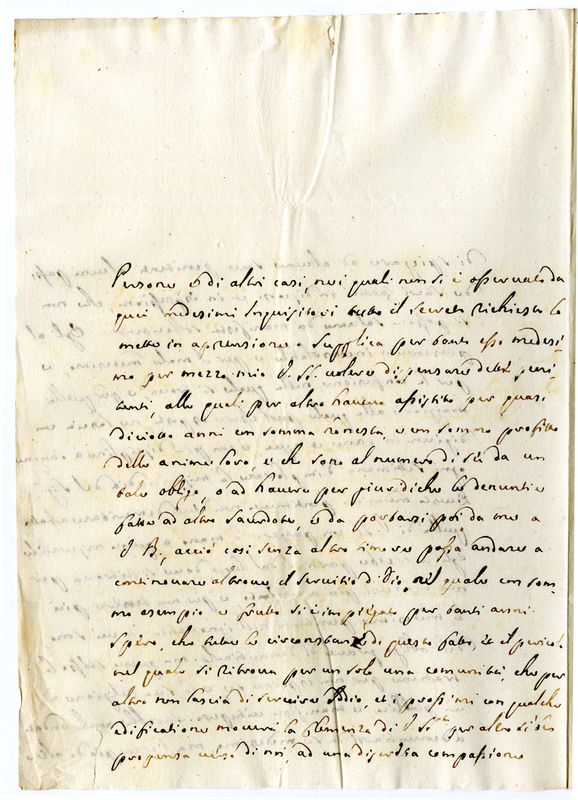 Persone ò di altri casi, ne i quali non si è osservato da
quei medesimi Inquisitori tutto il secreto richiesto lo
mette in aprensione. Supplica per tanto esso medesi-
mo per mezzo mio V. Sta. volere dispensare dette peni-
tenti, alle quali per altro haveva assistito per quasi
diciotto anni con somma honestà, e con sommo profitto
delle anime loro, e che sono al numero di sei da un
tale obligo, o ad havere per giuridiche le denuntie
fatte ad altro Sacerdote, ò da portarsi poi da me a
V. B., acciò così senza altro timore possa andare a
continovare altrove il servitio di Dio, nel quale con som-
mo esempio e frutto si è impiegato per tanti anni.
Spero, che tutte le circonstanze di questo fatto, et il pericolo
nel quale si ritrova per un solo una comunità, che per
altro non lascia di servire Iddio, et i prossimi con qualche
edificatione moverà la clemenza di V. Sta. per altro sì
propensa verso di noi, ad una discreta compassione